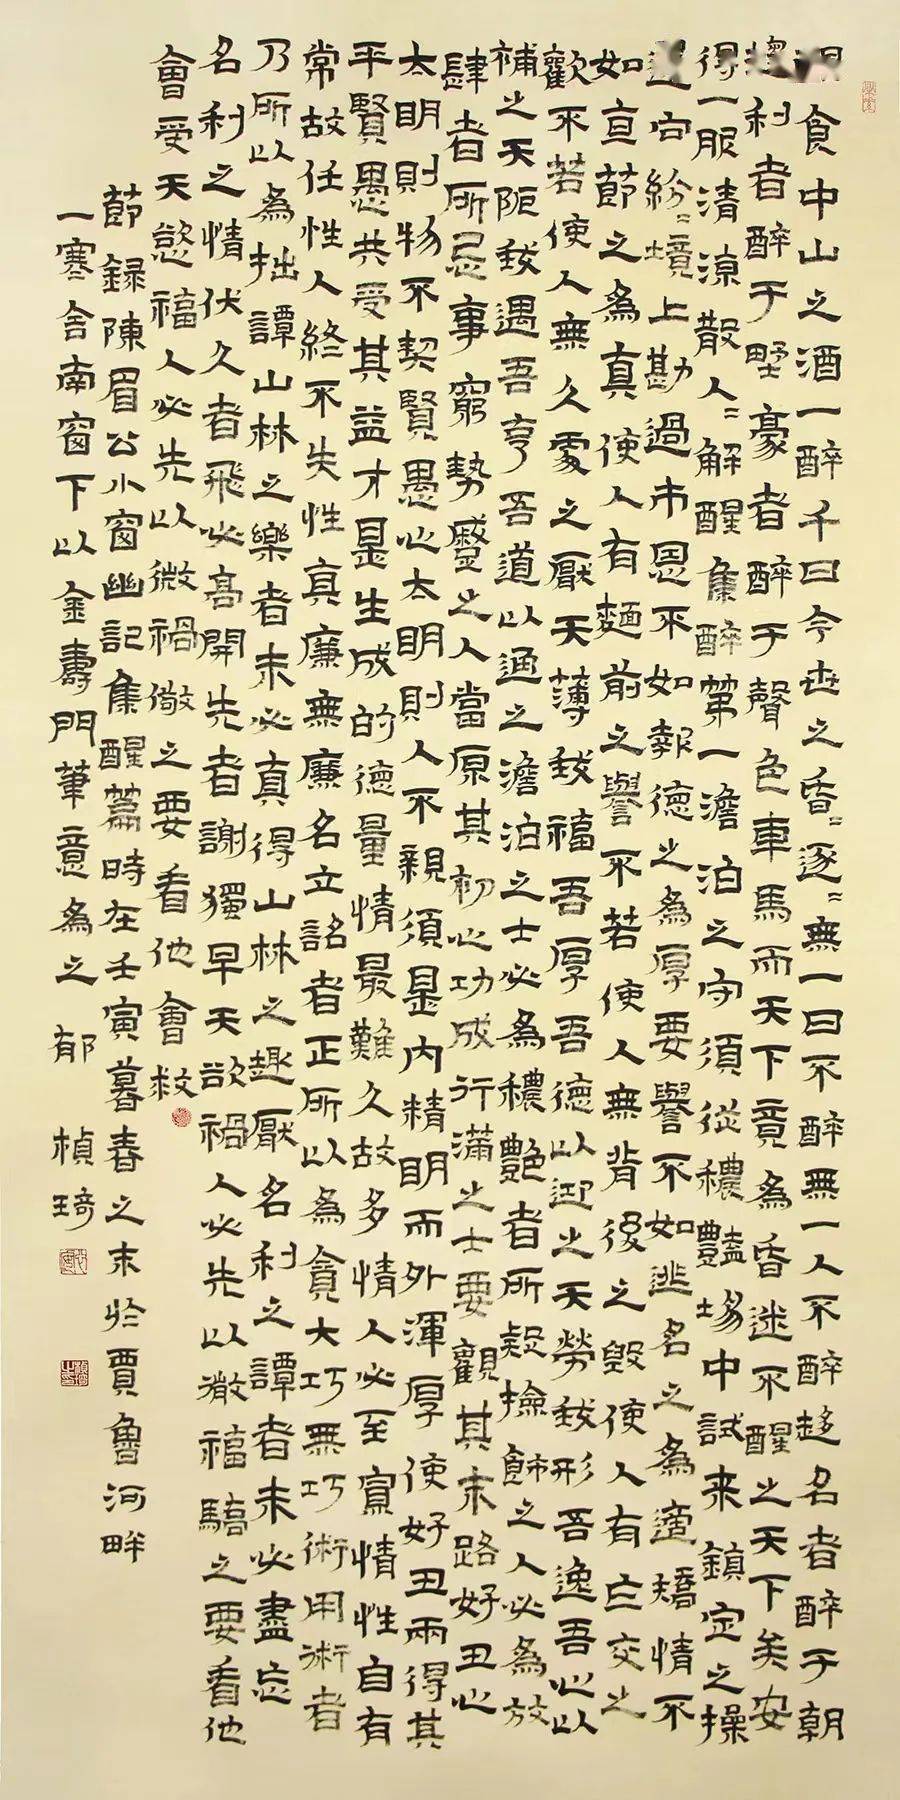 食中山之酒一醉千日今世之昏〻逐〻無一日不醉無一人不醉趍名者醉于朝
趍利者醉于野豪者醉于聲色車馬而天下竟為昏迷不醒之天下矣安
得一服清涼散人〻解醒集醉第一澹泊之守須從穠豔場中試来鎮定之操
還向紛〻境上勘過市恩不如報德之為厚要譽不如逃名之為適矯情不
如直節之為真使人有麵前之譽不若使人無背後之毀使人有乍交之
歡不若使人無久處之厭天薄我福吾厚吾德以迎之天勞我形吾逸吾心以
補之天阨我遇吾亨吾道以通之澹泊之士必為穠艷者所疑撿飾之人必為放
肆者所忌事窮勢蹙之人當原其初心功成行滿之士要觀其末路好丑心
太明則物不契賢愚心太明則人不親須是内精明而外渾厚使好丑兩得其
平賢愚共受其益才是生成的德量情最難久故多情人必至寡情性自有
常故任性人終不失性真廉無廉名立名者正所以為貪大巧無巧術用術者
乃所以為拙譚山林之樂者未必真得山林之趣厭名利之譚者未必盡忘
名利之情伏久者飛必高開先者謝獨早天欲禍人必先以微福驕之要看他
會受天慾福人必先以微禍儆之要看他會救
節録陳眉公小窗幽記集醒篇時在壬寅暮春之末於賈魯河畔
一寒舍南窗下以金壽門筆意為之 郁楨琦